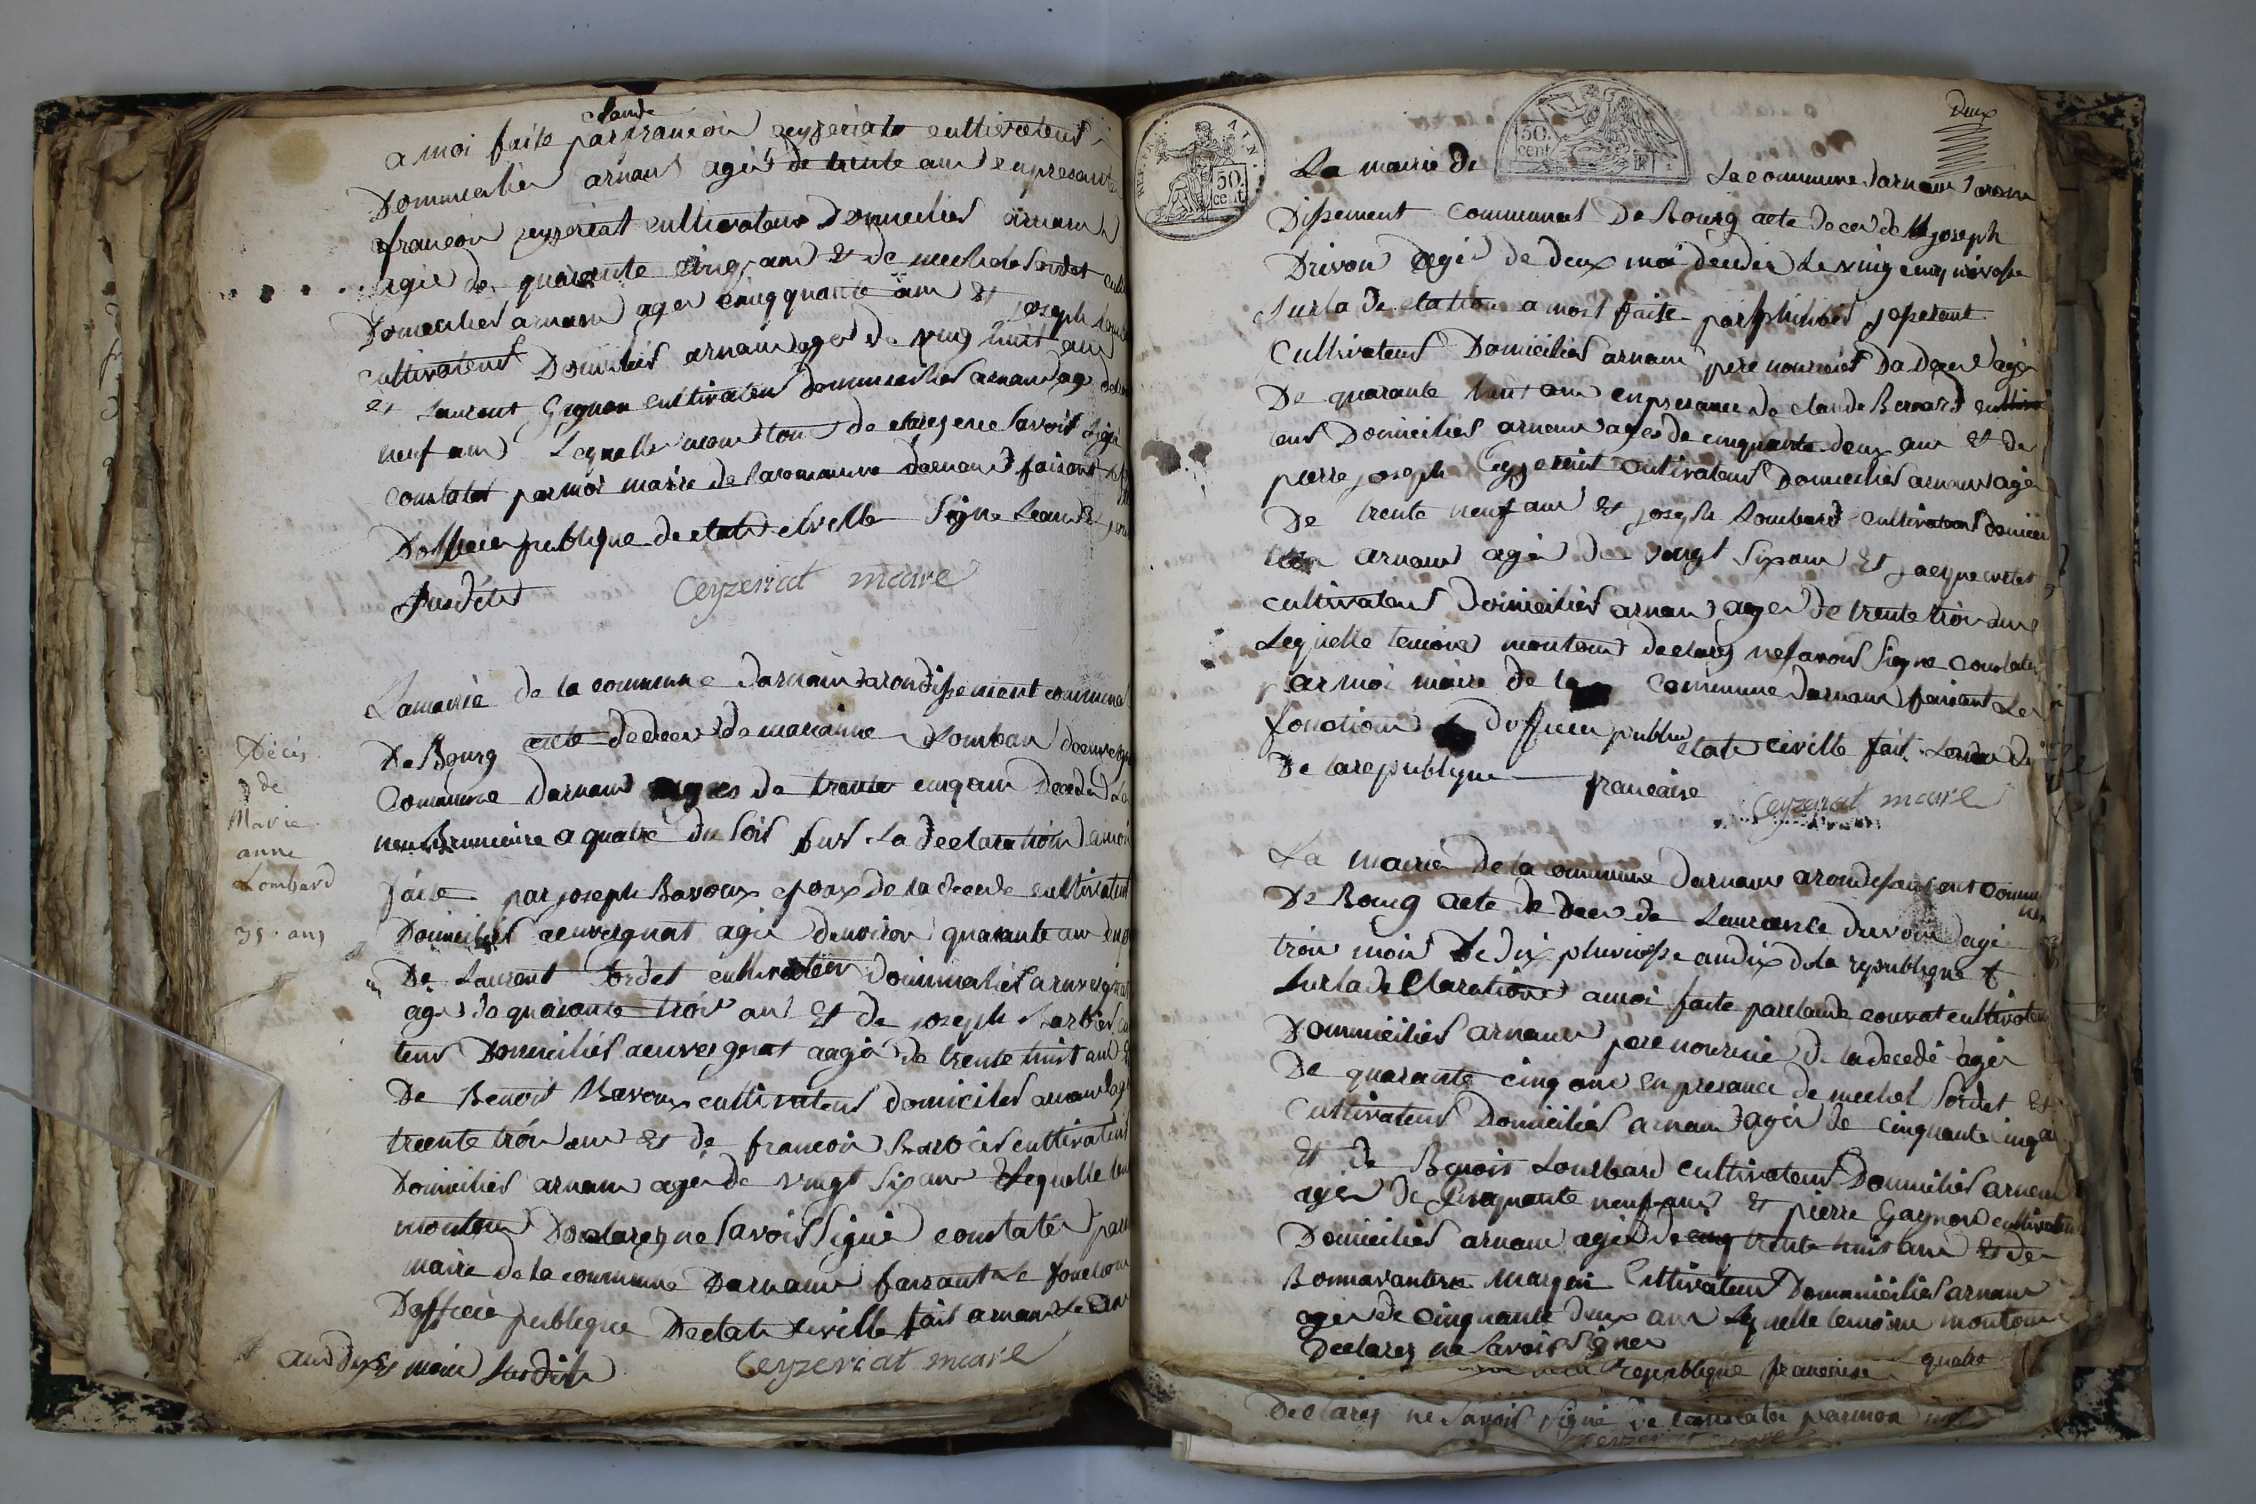 Claude
a moi faite par francoi ceyzeriate cultivateur
Domicilier arnans agés de trente ans enpresante
francoi ceyzeriat cultivateur Domicilies arnans
agie de quarante cinq ans Et de michel Sordet
Domicilies arnans ages cinqquante ans Et joseph
cultivateur Domicilies arnans ages de ving huit ans
et Laurent Gagnon cultivateur Dommicilies arnans
neuf ans Lequelle mont tous declares ne Savoir Signe
constater par moi maire de la commune darnans faisant
Dofficier publique de etate civille Signe Lean
Susdits
Ceyzeriat maire
La mairie de la commune darnans arondissement commune
De Bourg acte de deces de marianne Lombar
Commune darnans agés de trente cinq ans Decedes Le
neuf Brumaire a quatre du Soir sur La declaration a moi
faite par joseph Bavoux epoux de la decede cultivateur
Domicilies agie denviron quarante ans
De Laurent Sordet cultivateur dommicilies
ages de quarante trois ans Et de joseph Barbier
teur Domicilies aagie de trente huit ans
De Benoit Bavoux cultivateur domicilies arnans
treente trois ans Et de francoi Barbier cultivateur
Domicilies arnans agés de vingt Six ans Lequelle
montous Declares ne Savoir Signe constater par
maire de la commune Darnans faisant Le fonction
Dofficie publique De etate Siville fait arnans Le
ans dix Et moi Susdits
Ceyzeriat maire
Décès
de
Marie
anne
Lombard
35 ans
deux
REP. FRA.
AIN.
50.
cent.
50.
cent.
La mairie de La commune darnans aron
Dissement communal De Bourg acte de ces de joseph
Drivon agés de deux moi decedes Le ving cinq nivosse
Surla declation a moi faite par josserant
Cultivateur Domicilies arnans pere nouricier Da Decede agé
De quarante huit ans enpresance de claude Bernard cultiva
teur Domicilies arnans ages de cinquante deux ans Et de
pierre joseph Ceyzeriat cultivateur Domicilies arnans agé
De trente neuf ans Et joseph Lombard cultivateur domici
lier arnans agé de vingt Six ans Et jacque
cultivateur Domicilies arnans ages de trente trois ans
Lequelle temoins montous declares ne Savoir Signe constater
par moi maire de la commune darnans faisant Les
fonctions Dofficier public etate civille fait
De la republique francaise
Ceyzeriat maire
La mairie de la commune darnans arondissement commu
nal
De Bourg acte de deces de Laurence agé
trois mois Le Dix pluviosse an dix de la republique
Surla declaration a moi faite par claude convat cultivateur
Dommicilies arnans pere nouricie de la decedé agés
De quarante cinq ans en presance de michel Sordet Et
Cultivateur Domicilies arnans agés de cinquante cinq ans
Et de Benoit Lombard cultivateur Domicilies arnans
agés de cinquante neuf ans Et pierre Gagnon cultivateur
Domicilies arnans agés de cinq trente huit ans Et de
Bonnavanture cultivateur Dommicilies arnans
ages de cinquante deux ans Lequelle temoins montous
Declares ne Savoir Signe
republique francaise quatre
Declares ne Savoir Signe constater par moi
ceyzeriat maire